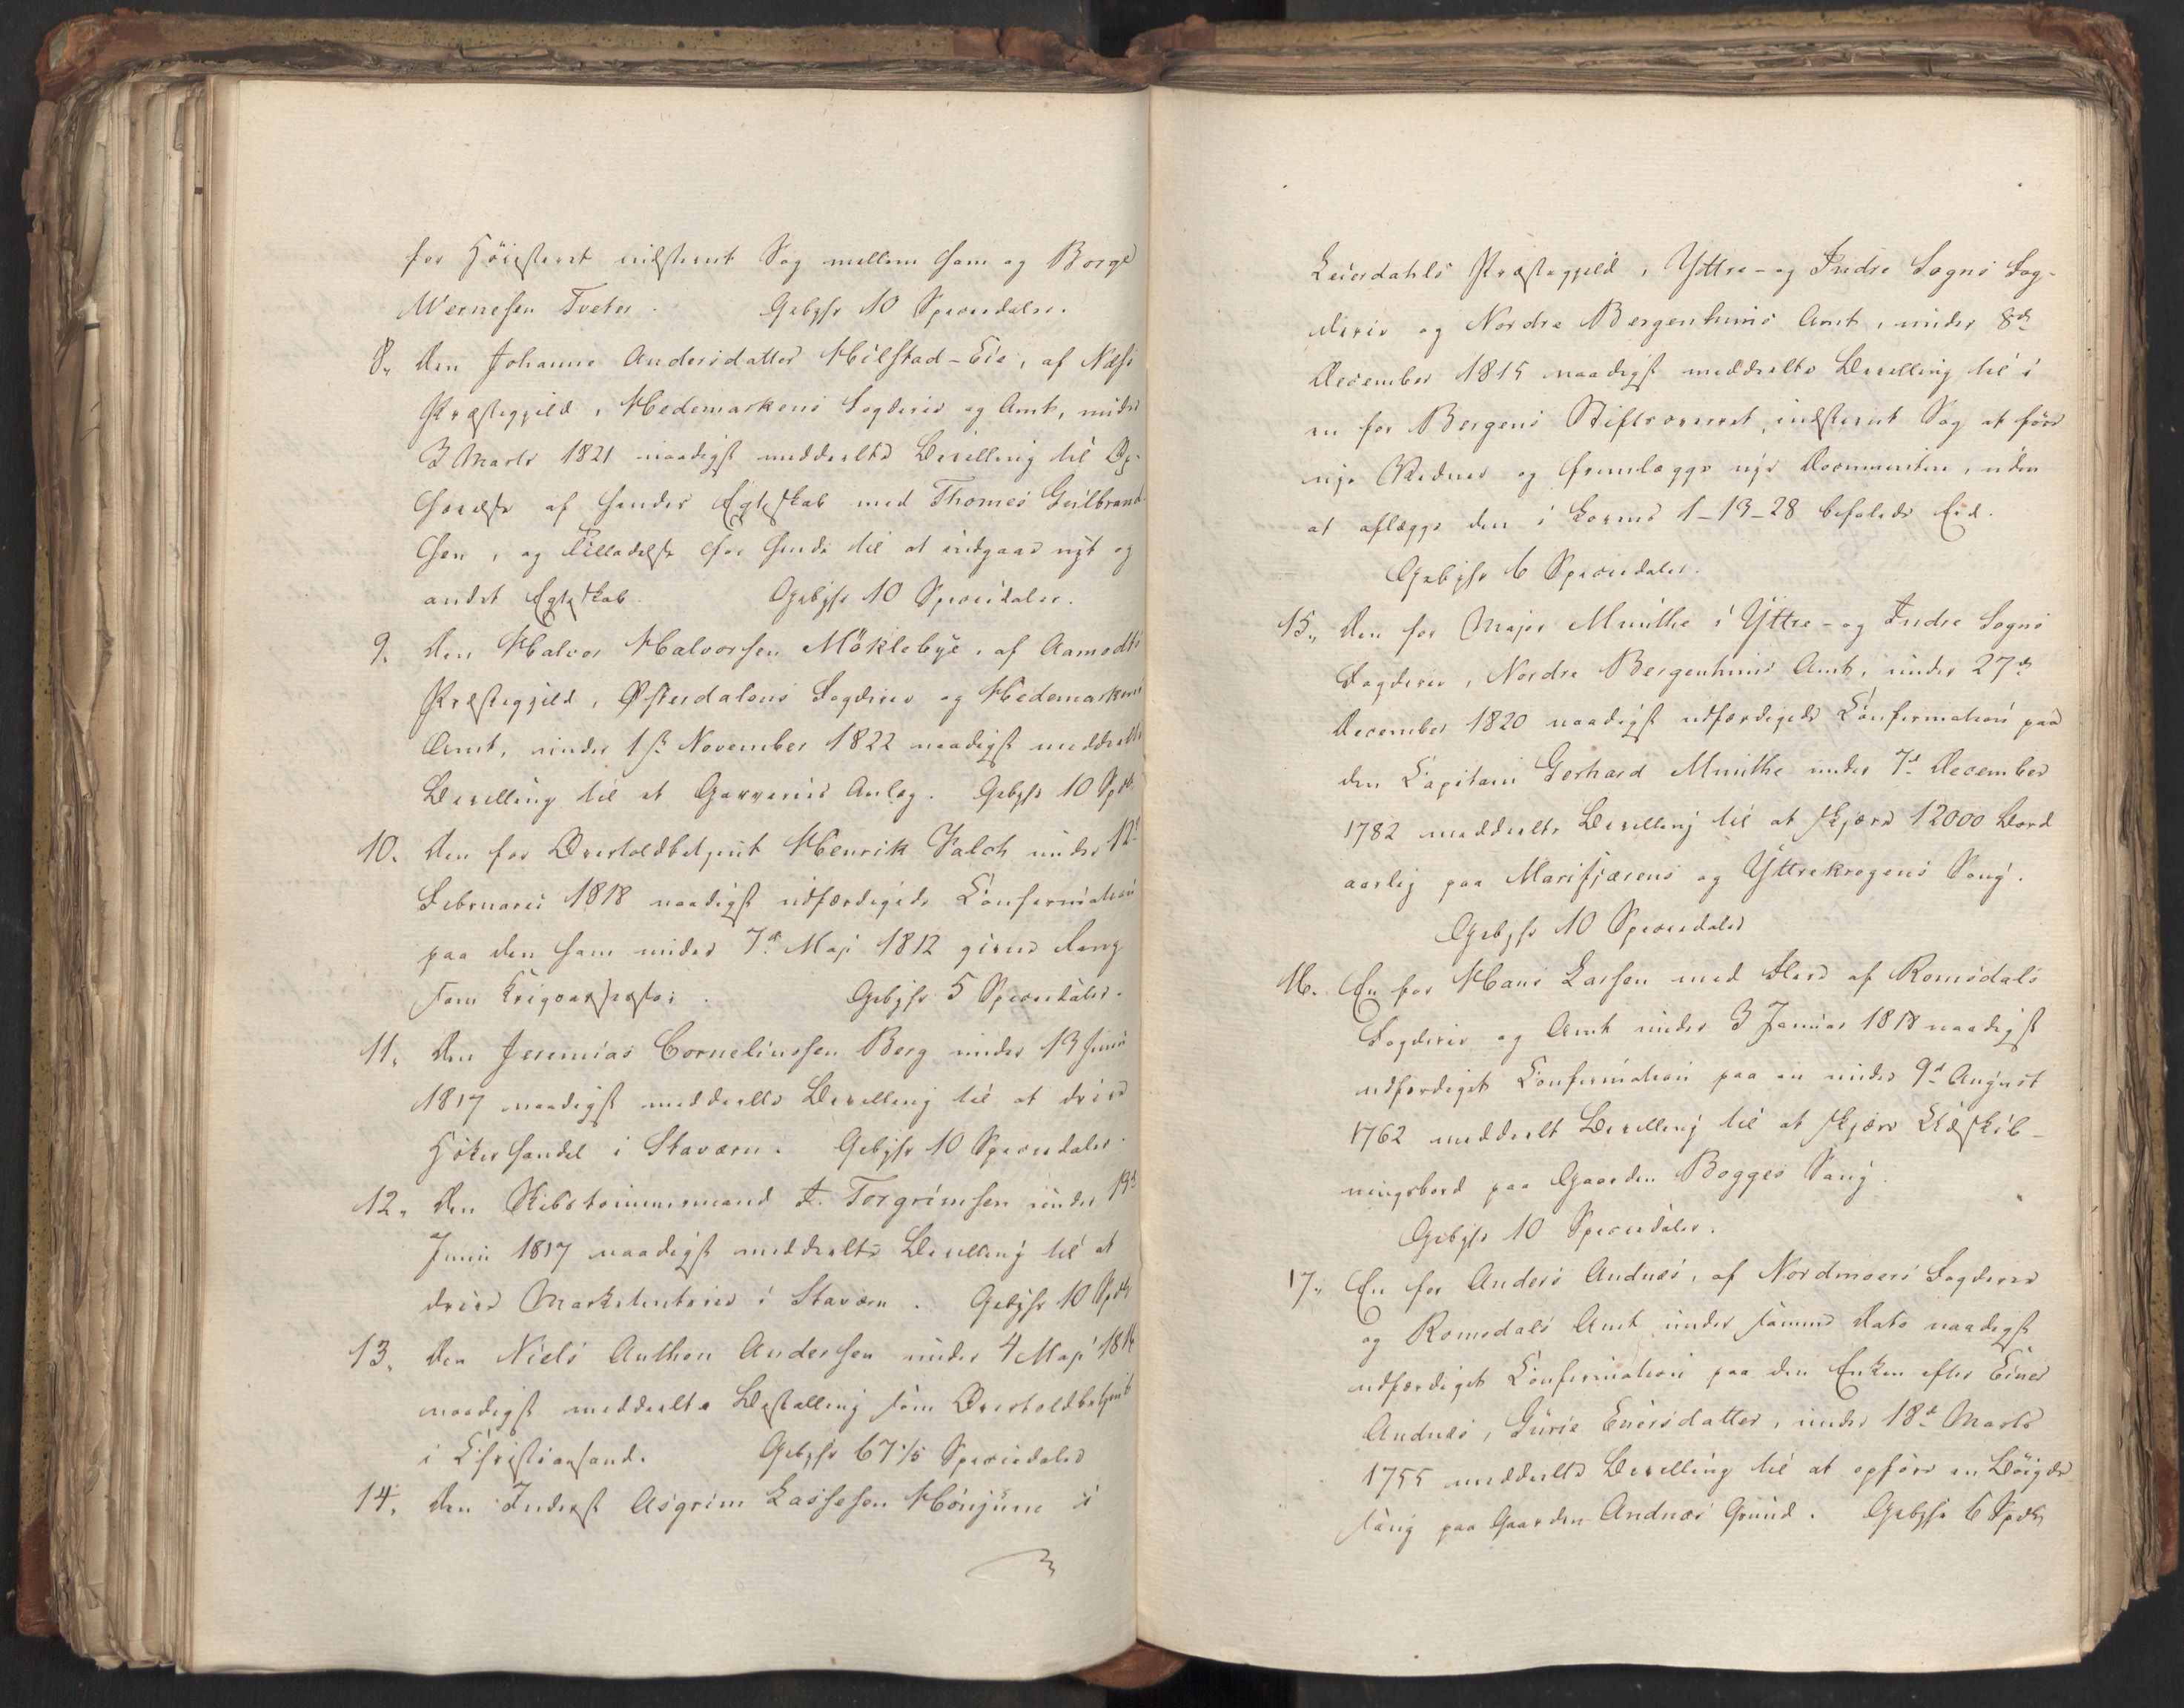 for Höiesteret indstevnt Sag mellem ham og Borge
Wernersen Tveter. Gebyhr 10 Speciedaler.
8, Den Johanne Andersdatter Hilstad-Eie, af Næss
Præstegjeld, Hedemarkens Fogderie og Amt, under
3 Marts 1821 naadigst meddeelte Bevilling til Op-
hævelse af hendes Egteskab med Thomes Gulbrand-
sen, og Tilladelse for hende til at indgaae nyt og
andet Egteskab. Gebyhr 10 Speciedaler.
9, Den Halvor Halvorsen Möklebye, af Aamodts
Præstegjeld, Østerdalens Fogderie og Hedemarkens
Amt, under 1ste November 1822 naadigst meddeelte
Bevilling til et Garveries Anlæg. Gebyhr 10 Spdlr
10, Den for Overtoldbetjent Henrik Falch under 12te
Februarii 1818 naadigst udfærdigede Confirmation
paa den ham under 7de Maji 1812 givne Rang
som Krigsassessor. Gebyhr 5 Speciedaler.
11, Den Jeremias Corneliussen Berg under 13 Junii
1817 naadigst meddeelte Bevilling til at drive
Høkerhandel i Staværn. Gebyhr 10 Speciedaler.
12, Den Skibstömmermand A. Torgrimsen under 13de
Junii 1817 naadigst meddeelte Bevilling til at
drive Marketenterie i Staværn. Gebyhr 10 Spdlr
13, Den Niels Anthon Andersen under 4 Maji 1814
naadigst meddeelte Bestalling som Overtoldbetjent
i Christiansand. Gebyhr 67 1/5 Speciedaler
14, Den Inderst Asgrim Lassesen Honjune i
Leierdahls Præstegjeld, Yttre- og Indre Sogns Fog-
derie og Nordre Bergenhuus Amt, under 8de
December 1815 naadigst meddeelte Bevilling til i
en for Bergens Stiftsoverret indstevnt Sag at före
nye Vidner og fremlægge nye Documenter, uden
at aflægge den i Lovens 1-13-28 befalede Eed.
Gebyhr 6 Speciedaler.
15, Den for Major Munthe i Yttre- og Indre Sogns
Fogderie, Nordre Bergenhuus Amt, under 27de
December 1820 naadigst udfærdigede Confirmation paa
den Capitain Gerhard Munthe under 7de December
1782 meddeelte Bevilling til at skjære 12000 Bord
aarlig paa Marifjærens og Yttrekrogens Saug.
Gebyhr 10 Speciedaler
16. En for Hans Larsen med Flere af Romsdals
Fogderie og Amt under 3 Januar 1818 naadigst
udfærdiget Confirmation paa en under 9de August
1762 meddeelt Bevilling til at skjære Udskib-
ningsbord paa Gaarden Bogges Saug.
Gebyhr 10 Speciedaler.
17, En for Anders Andnæs, af Nordmoers Fogderie
og Romsdals Amt under samme Dato naadigst
udfærdiget Confirmation paa den Enken efter Einer
Andnæs, Gurie Enersdatter, under 18de Marts
1755 meddeelte Bevilling til at opföre en Böigde-
saug paa Gaarden Andnæs Grund. Gebyhr 6 Spdlr